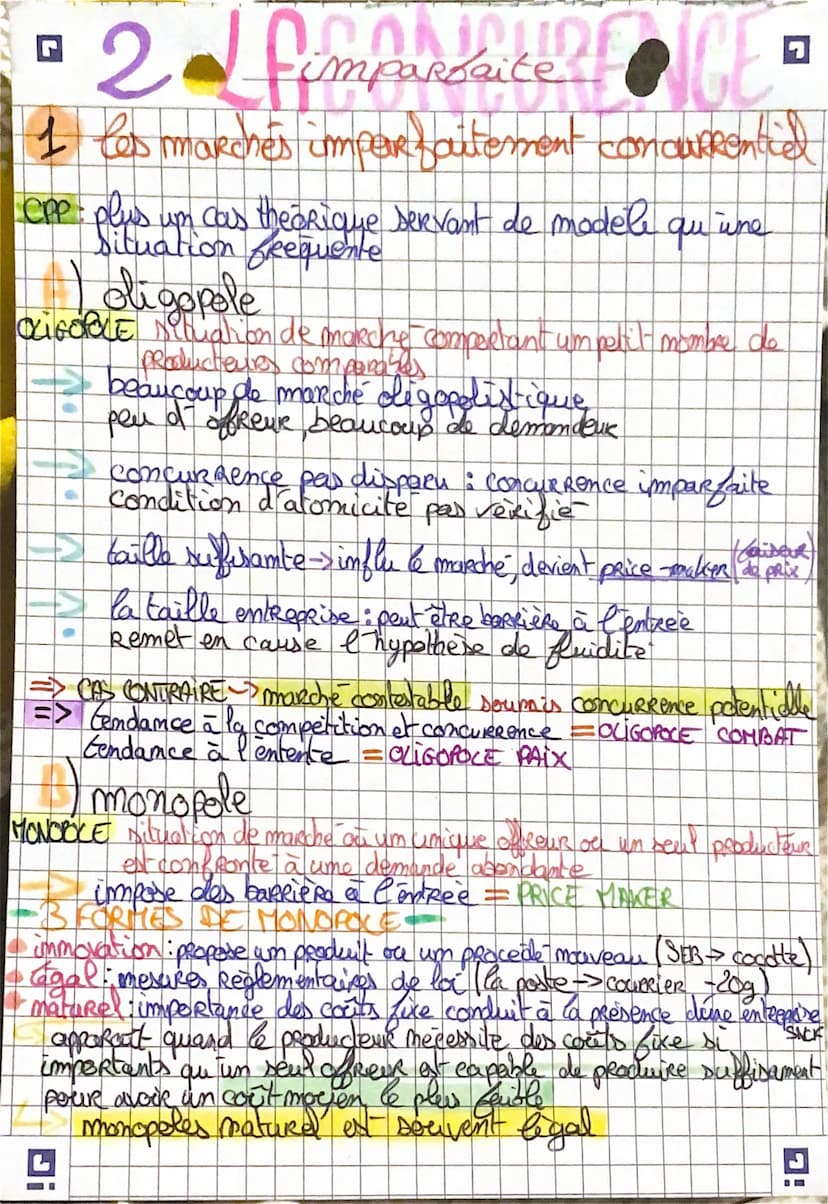 2. LA CONCURENCE
imparfaite
1 les marchés imparfaitement concurrentiel
CPP : plus un cas théorique servant de modèle qu'une
situation freequente
A) oligopole
OLIGOPOLE situation de marché comportant un petit nombre de
producteurs comparatés
→ beaucoup de marché oligopolistique
peu d'offreur, beaucoup de demandeur
→ concurrence pas disparu : concurrence imparfaite
condition d'atomicité pas vérifié
→ taille suffisamte → influ le marché, devient price-maker (faiseur
de prix)
→ la taille entreprise : peut être barrière à l'entrée
remet en cause l'hypothèse de fluidité
=> CAS CONTRAIRE → marché contestable soumis concurrence potentielle
=> tendance à la compétition et concurrence = OLIGOPOLE COMBAT
tendance à l'entente = OLIGOPOLE PAIX
B) monopole
MONOPOLE situation de marché où un unique offreur ou un seul producteur
est confronté à une demande abondante
→ impose des barrière à l'entrée = PRICE MAKER
- 3 FORMES DE MONOPOLE -
• innovation : propose un produit ou un procédé nouveau (SEB → cocotte)
• légal : mesures réglementaires de loi (la poste → courrier -20g)
• naturel : importance des coûts fixe conduit à la présence d'une entreprise
SNCF
apparait quand le producteur nécessite des coûts fixe si
importants qu'un seul offreur est capable de produire suffisament
pour avoir un coût moyen le plus faible
↳ monopoles naturel est souvent légal